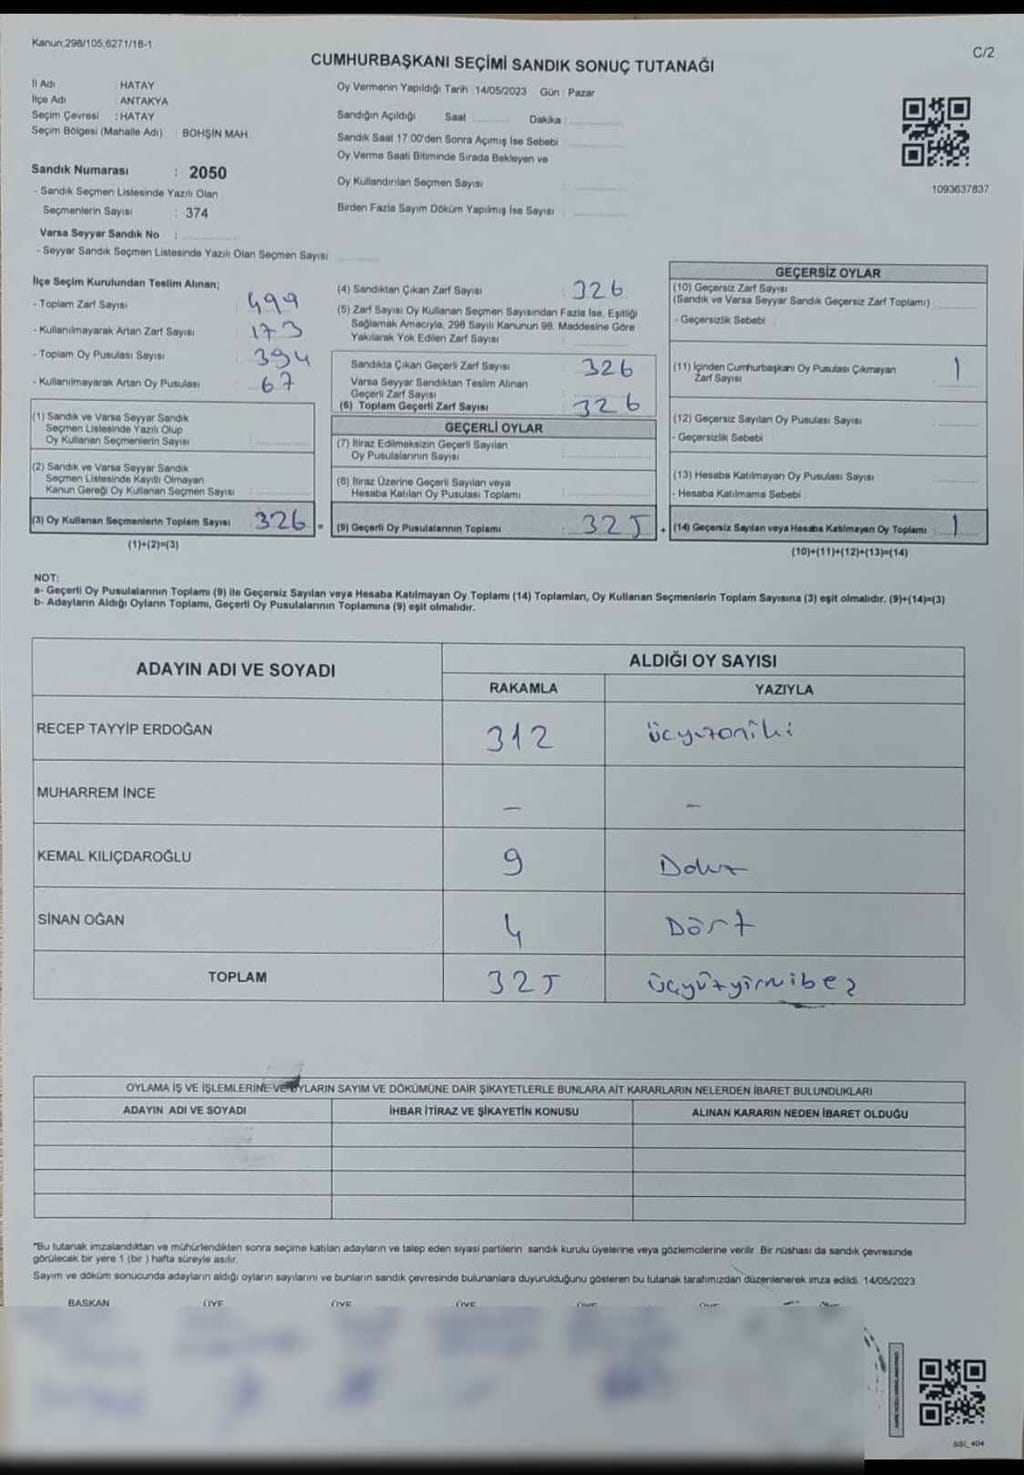 Kanun:298/105,6271/18-1
C/2
CUMHURBAŞKANI SEÇİMİ SANDIK SONUÇ TUTANAĞI
İl Adı : HATAY
İlçe Adı : ANTAKYA
Seçim Çevresi : HATAY
Seçim Bölgesi (Mahalle Adı) : BOHŞİN MAH.
Sandık Numarası : 2050
- Sandık Seçmen Listesinde Yazılı Olan
Seçmenlerin Sayısı : 374
Varsa Seyyar Sandık No :
- Seyyar Sandık Seçmen Listesinde Yazılı Olan Seçmen Sayısı
Oy Vermenin Yapıldığı Tarih : 14/05/2023 Gün : Pazar
Sandığın Açıldığı Saat Dakika :
Sandık Saat 17:00'den Sonra Açımış İse Sebebi
Oy Verme Saati Bitiminde Sırada Bekleyen ve
Oy Kullandırılan Seçmen Sayısı
Birden Fazla Sayım Döküm Yapılmış İse Sayısı
1093637837
İlçe Seçim Kurulundan Teslim Alınan;
- Toplam Zarf Sayısı 499
- Kullanılmayarak Artan Zarf Sayısı 173
- Toplam Oy Pusulası Sayısı 394
- Kullanılmayarak Artan Oy Pusulası 67
(1) Sandık ve Varsa Seyyar Sandık
Seçmen Listesinde Yazılı Olup
Oy Kullanan Seçmenlerin Sayısı
(2) Sandık ve Varsa Seyyar Sandık
Seçmen Listesinde Kayıtlı Olmayan
Kanun Gereği Oy Kullanan Seçmen Sayısı
(3) Oy Kullanan Seçmenlerin Toplam Sayısı 326 =
(1)+(2)=(3)
(4) Sandıktan Çıkan Zarf Sayısı 326
(5) Zarf Sayısı Oy Kullanan Seçmen Sayısından Fazla İse, Eşitliği
Sağlamak Amacıyla, 298 Sayılı Kanunun 98. Maddesine Göre
Yakılarak Yok Edilen Zarf Sayısı
Sandıkta Çıkan Geçerli Zarf Sayısı 326
Varsa Seyyar Sandıktan Teslim Alınan
Geçerli Zarf Sayısı
(6) Toplam Geçerli Zarf Sayısı 326
GEÇERLİ OYLAR
(7) İtiraz Edilmeksizin Geçerli Sayılan
Oy Pusulalarının Sayısı
(8) İtiraz Üzerine Geçerli Sayılan veya
Hesaba Katılan Oy Pusulası Toplamı
(9) Geçerli Oy Pusulalarının Toplamı 325 +
GEÇERSİZ OYLAR
(10) Geçersiz Zarf Sayısı
(Sandık ve Varsa Seyyar Sandık Geçersiz Zarf Toplamı)
- Geçersizlik Sebebi
(11) İçinden Cumhurbaşkanı Oy Pusulası Çıkmayan
Zarf Sayısı 1
(12) Geçersiz Sayılan Oy Pusulası Sayısı
- Geçersizlik Sebebi
(13) Hesaba Katılmayan Oy Pusulası Sayısı
- Hesaba Katılmama Sebebi
(14) Geçersiz Sayılan veya Hesaba Katılmayan Oy Toplamı 1
(10)+(11)+(12)+(13)=(14)
NOT:
a- Geçerli Oy Pusulalarının Toplamı (9) ile Geçersiz Sayılan veya Hesaba Katılmayan Oy Toplamı (14) Toplamları, Oy Kullanan Seçmenlerin Toplam Sayısına (3) eşit olmalıdır. (9)+(14)=(3)
b- Adayların Aldığı Oyların Toplamı, Geçerli Oy Pusulalarının Toplamına (9) eşit olmalıdır.
ADAYIN ADI VE SOYADI
ALDIĞI OY SAYISI
RAKAMLA YAZIYLA
RECEP TAYYİP ERDOĞAN 312 üçyüzoniki
MUHARREM İNCE - -
KEMAL KILIÇDAROĞLU 9 Dokuz
SİNAN OĞAN 4 Dört
TOPLAM 325 üçyüzyirmibeş
OYLAMA İŞ VE İŞLEMLERİNE VE OYLARIN SAYIM VE DÖKÜMÜNE DAİR ŞİKAYETLERLE BUNLARA AİT KARARLARIN NELERDEN İBARET BULUNDUKLARI
ADAYIN ADI VE SOYADI İHBAR İTİRAZ VE ŞİKAYETİN KONUSU ALINAN KARARIN NEDEN İBARET OLDUĞU
"Bu tutanak imzalandıktan ve mühürlendikten sonra seçime katılan adayların ve talep eden siyasi partilerin sandık kurulu üyelerine veya gözlemcilerine verilir. Bir nüshası da sandık çevresinde
görülecek bir yere 1 (bir ) hafta süreyle asılır.
Sayım ve döküm sonucunda adayların aldığı oyların sayılarını ve bunların sandık çevresinde bulunanlara duyurulduğunu gösteren bu tutanak tarafımızdan düzenlenerek imza edildi. 14/05/2023
BAŞKAN ÜYE ÜYE ÜYE
SSI_404